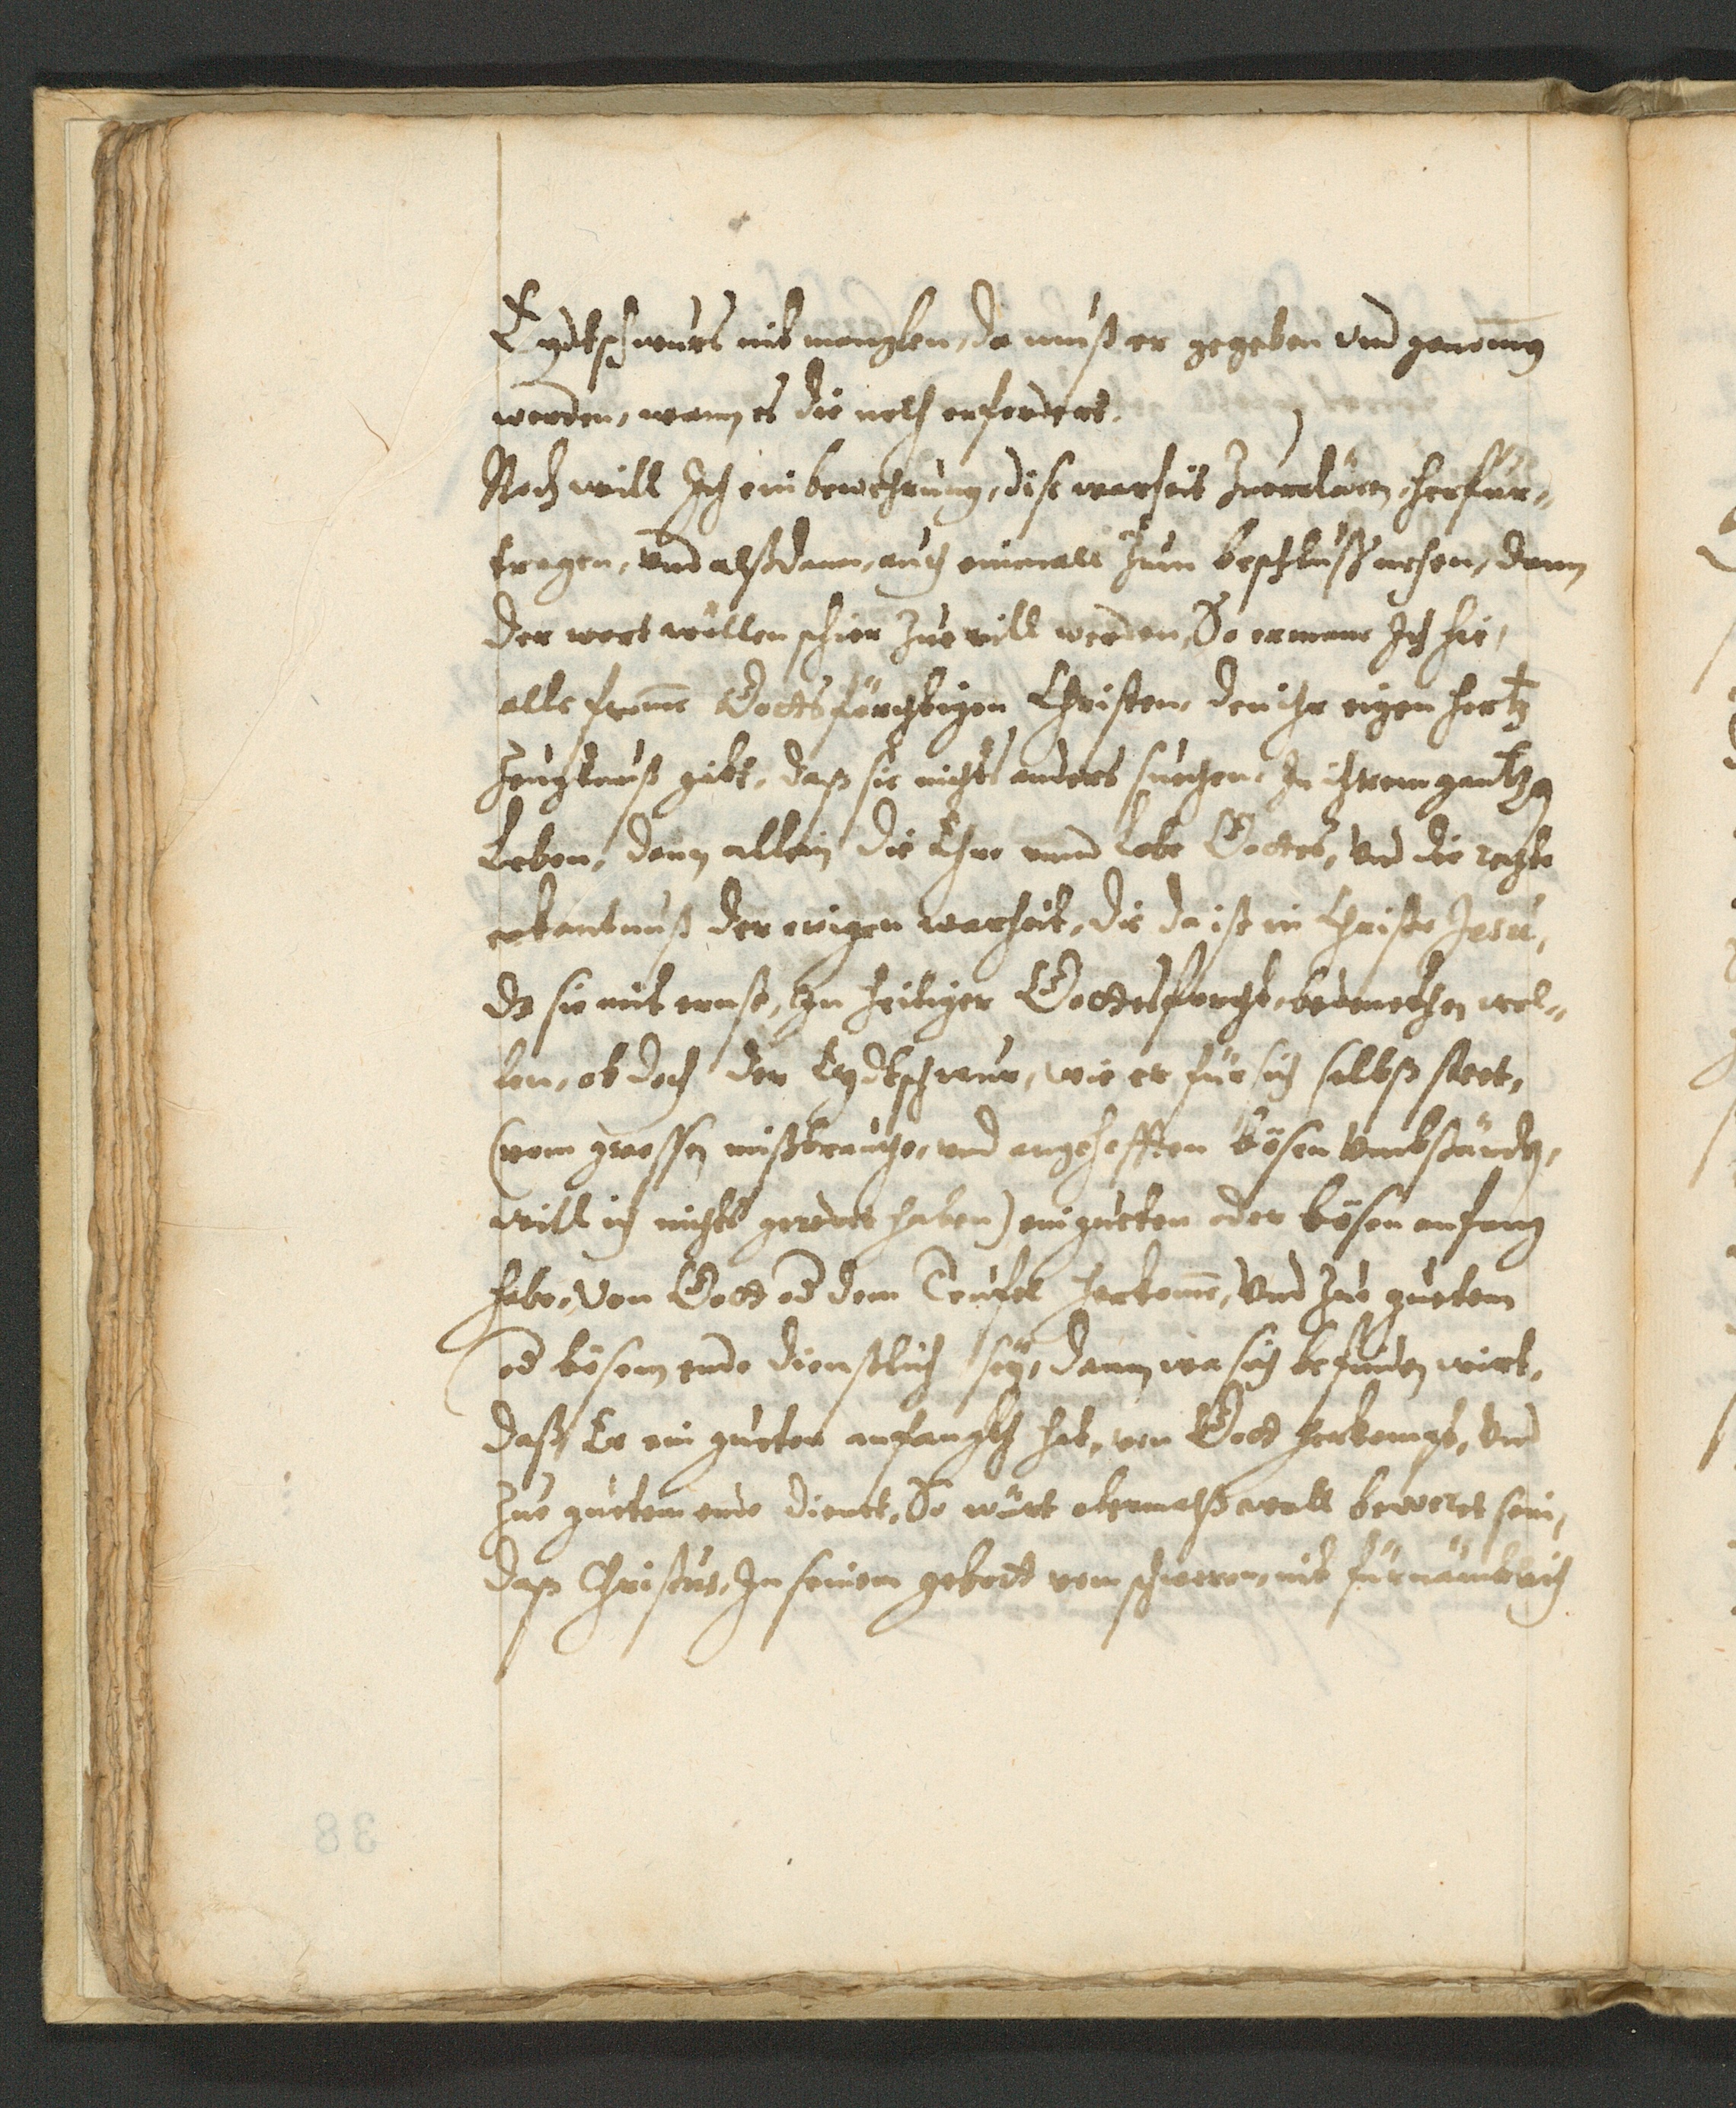 Eydtschwurs nit manglen, da muß er gegeben vnd genomen
werden, wann es die noth erfordert.
Noch will Ich ein bewehrung, dise warheit Zuerclären, herfür„
tragen, vnd alßdann, auch einmall Zum beschluß nehen, dann
der wort wöllen schier Zue vill werden, So ermane Ich hie,
alle frome Gottsförchtigen Christen, den ihr eigen hertz
Zeugknuß gibt, daß sie nichts anders suechen, In ihrem gantzen
Leben, dann allein die Ehre vnnd Lobe Gottes, vnd die rechte
erkantnuß der ewigen warheit, die da ist in Christo Jesu,
dz sie mit ernst, In heiliger Gottesforcht, bedenckhen wol„
len, ob doch der Eydtschwur, wie er für sich selbst steet,
(vom grossen mißbrauche, vnd angehefften bösen vmbständen,
will ich nichts geredet haben) ein gueten oder bösen anfang
habe, von Gott od dem Teufel herkome, vnd Zue guetem
od bösem ende dienstlich sey, dann wa sich befinden wirt,
daß Er ein gueten anfangkh hat, von Gott herkompt, vnd
Zue guetem ende dienet, So würt abermalß woll beweret sein,
daß Christus, In seinem gebott vom schweren, nit fürnämblich
38